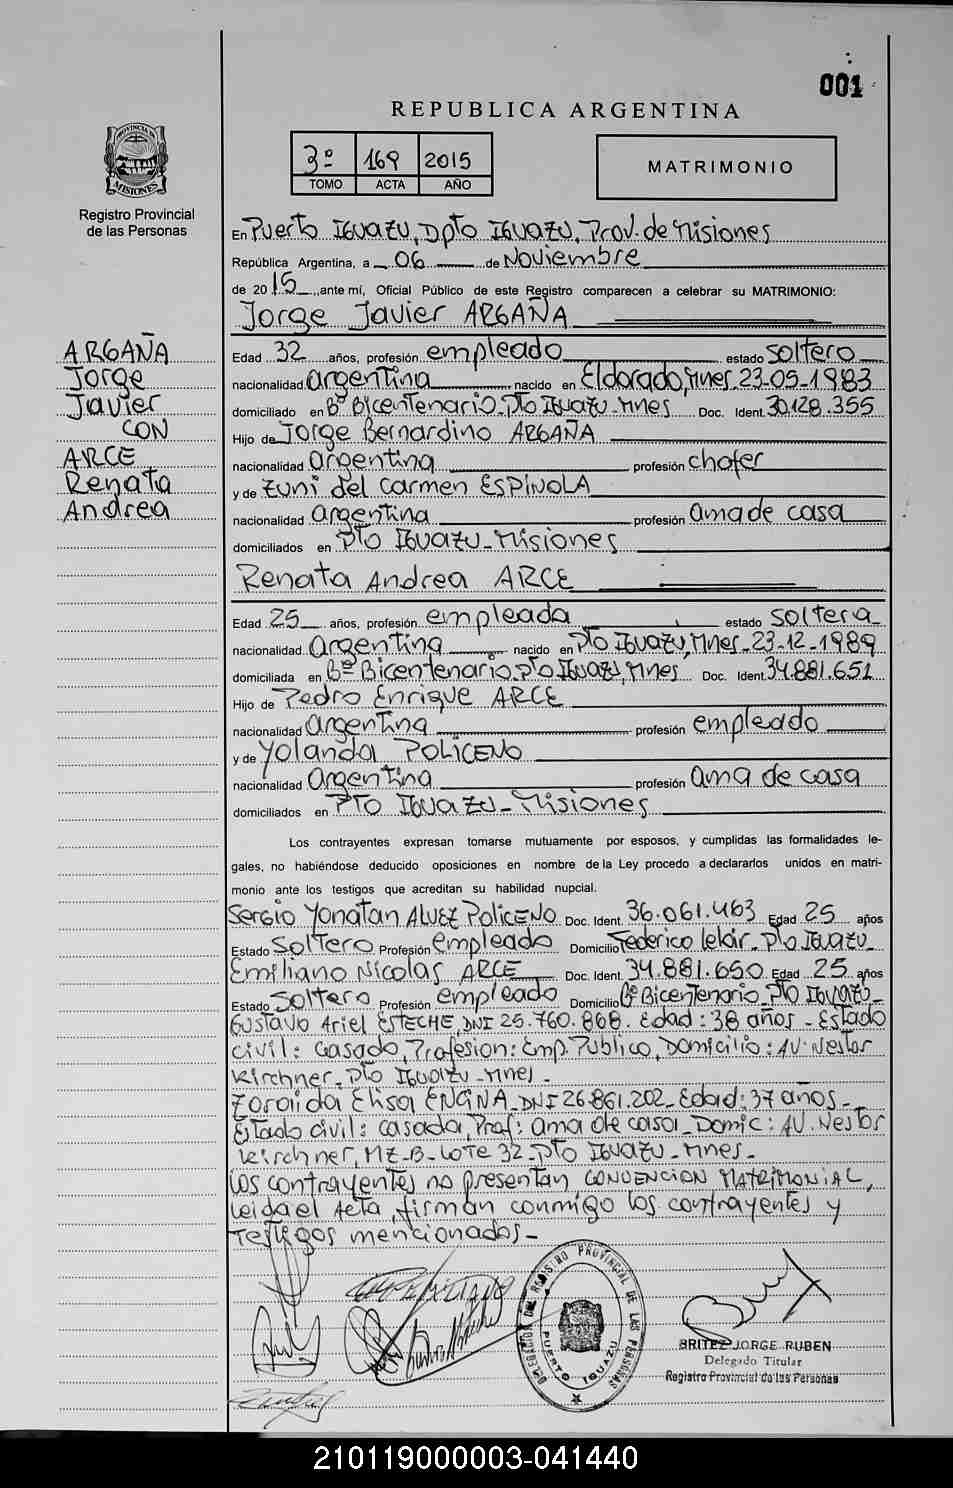 001
REPUBLICA ARGENTINA
3º 169 2015
TOMO ACTA AÑO
MATRIMONIO
PROVINCIA DE
MISIONES
Registro Provincial
de las Personas
En Puerto IGUAZU, Dpto IGUAZU, Prov. de Misiones
República Argentina, a 06 de Noviembre
de 2015, ante mí, Oficial Público de este Registro comparecen a celebrar su MATRIMONIO:
Jorge Javier ARGAÑA
ARGAÑA
Jorge
Javier
CON
ARCE
Renata
Andrea
Edad 32 años, profesión empleado estado soltero
nacionalidad argentina nacido en Eldorado, Mnes, 23-05-1983
domiciliado en Bº Bicentenario-Pto Iguazu-Mnes Doc. Ident. 30.128.355
Hijo de Jorge Bernardino ARGAÑA
nacionalidad argentina profesión chofer
y de Zuni del Carmen ESPINOLA
nacionalidad argentina profesión ama de casa
domiciliados en Pto IGUAZU-Misiones
Renata Andrea ARCE
Edad 25 años, profesión empleada estado soltera
nacionalidad Argentina nacido en Pto IGUAZU, Mnes-23-12-1989
domiciliada en Bº Bicentenario-Pto IGUAZU, Mnes Doc. Ident. 34.881.651
Hijo de Pedro Enrique ARCE
nacionalidad argentina profesión empleado
y de Yolanda POLICENO
nacionalidad Argentina profesión ama de casa
domiciliados en PTO IGUAZU-Misiones
Los contrayentes expresan tomarse mutuamente por esposos, y cumplidas las formalidades le-
gales, no habiéndose deducido oposiciones en nombre de la Ley procedo a declararlos unidos en matri-
monio ante los testigos que acreditan su habilidad nupcial.
Sergio Yonatan ALVEZ POLICENO Doc. Ident. 36.061.463 Edad 25 años
Estado Soltero Profesión empleado Domicilio Federico Leloir-Pto IGUAZU
Emiliano Nicolas ARCE Doc. Ident. 34.881.650 Edad 25 años
Estado Soltero Profesión empleado Domicilio Bº Bicentenario-PTO IGUAZU-
Gustavo Ariel ESTECHE, DNI 25.760.868. Edad: 38 años - Estado
civil: casado, Profesion: Emp. Publico, Domicilio: AV. Nestor
Kirchner-Pto IGUAZU-Mnes-
Zoraida Elisa ENCINA-DNI 26.861.202-Edad: 37 años-
Estado civil: casada, Prof: ama de casa-Domic: AV. Nestor
Kirchner, MZ-B-Lote 32-Pto IGUAZU-Mnes-
Los contrayentes no presentan CONVENCION MATRIMONIAL,
leida el Acta, firman conmigo los contrayentes y
Testigos mencionados-
REGISTRO PROVINCIAL DE LAS PERSONAS
PUERTO IGUAZU
BRITEZ JORGE RUBEN
Delegado Titular
Registro Provincial de las Personas
210119000003-041440